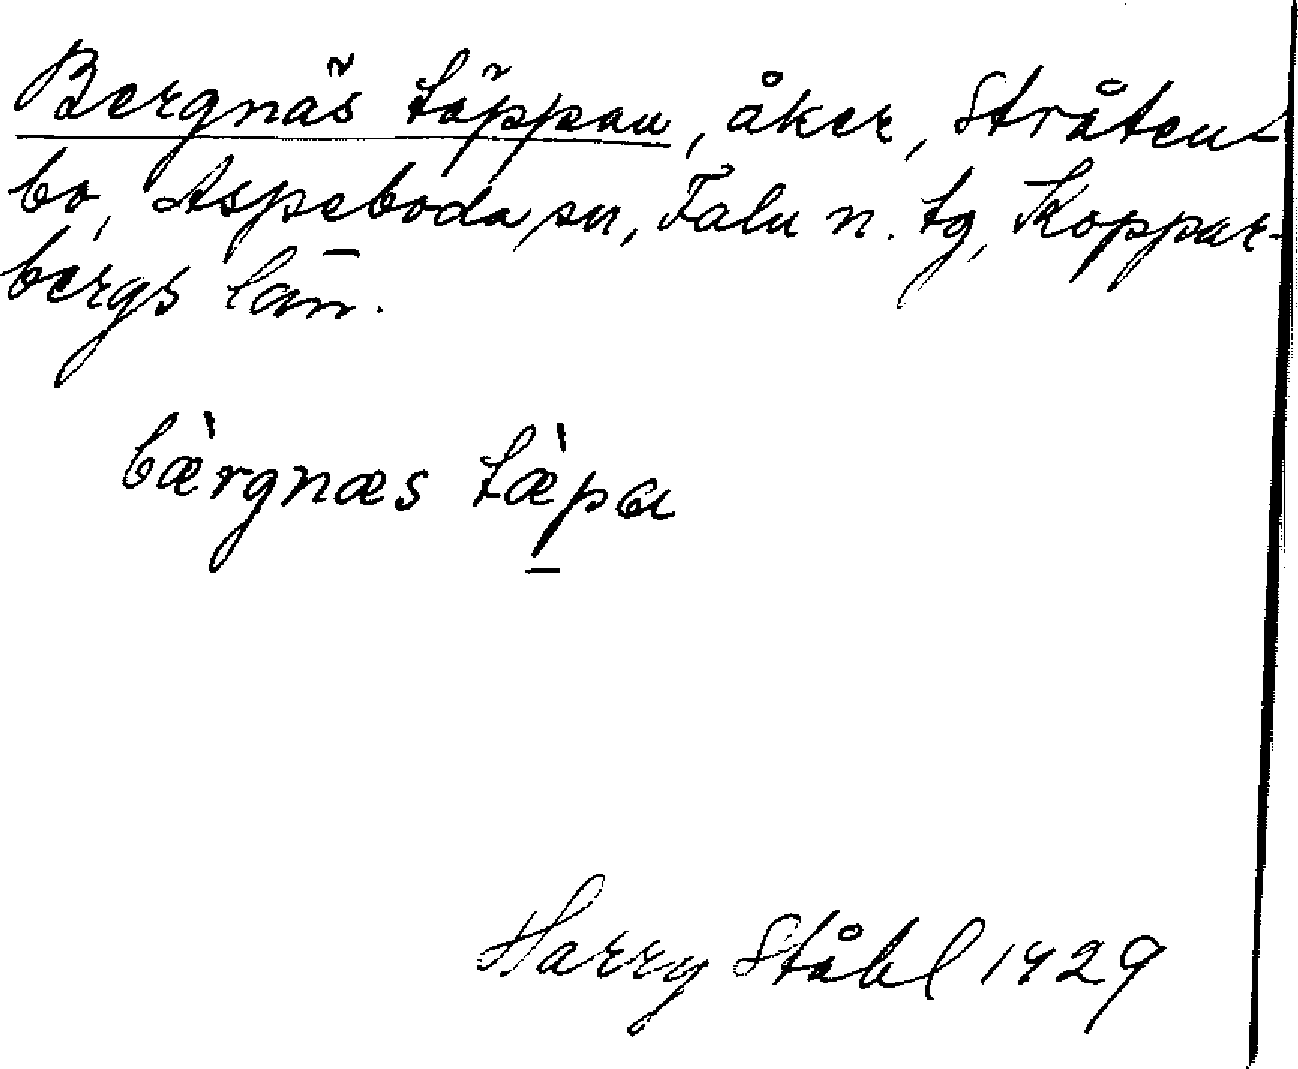 Bergnäs täppan, åker, Stråten-
bo, Aspeboda sn, Falu n. tg, Koppar-
bergs län.
bæ̀rgnæs tæ̀pa
Harry Ståhl 1929